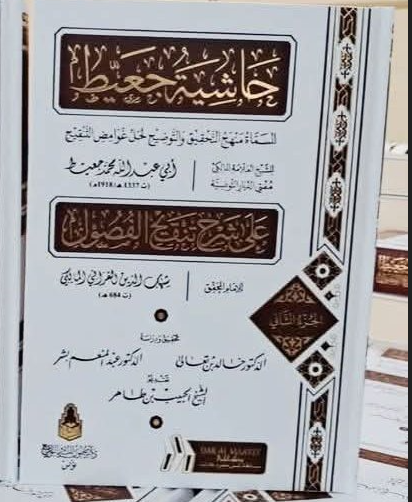 حاشية جعيط
المسماة منهج التحقيق والتوضيح لحل غوامض التنقيح
للشيخ العلامة المالكي
مفتي الديار التونسية
أبي عبد الله محمد جعيط
(ت 1337هـ/1918م)
على شرح تنقيح الفصول
للإمام المحقق
شهاب الدين القرافي المالكي
(ت 684هـ)
الجزء الثاني
تحقيق ودراسة
الدكتور خالد بن تعالى
الدكتور عبد المنعم البشر
تقديم
الشيخ الحبيب بن طاهر
تونس
DAR AL MAAZEY
Publishing